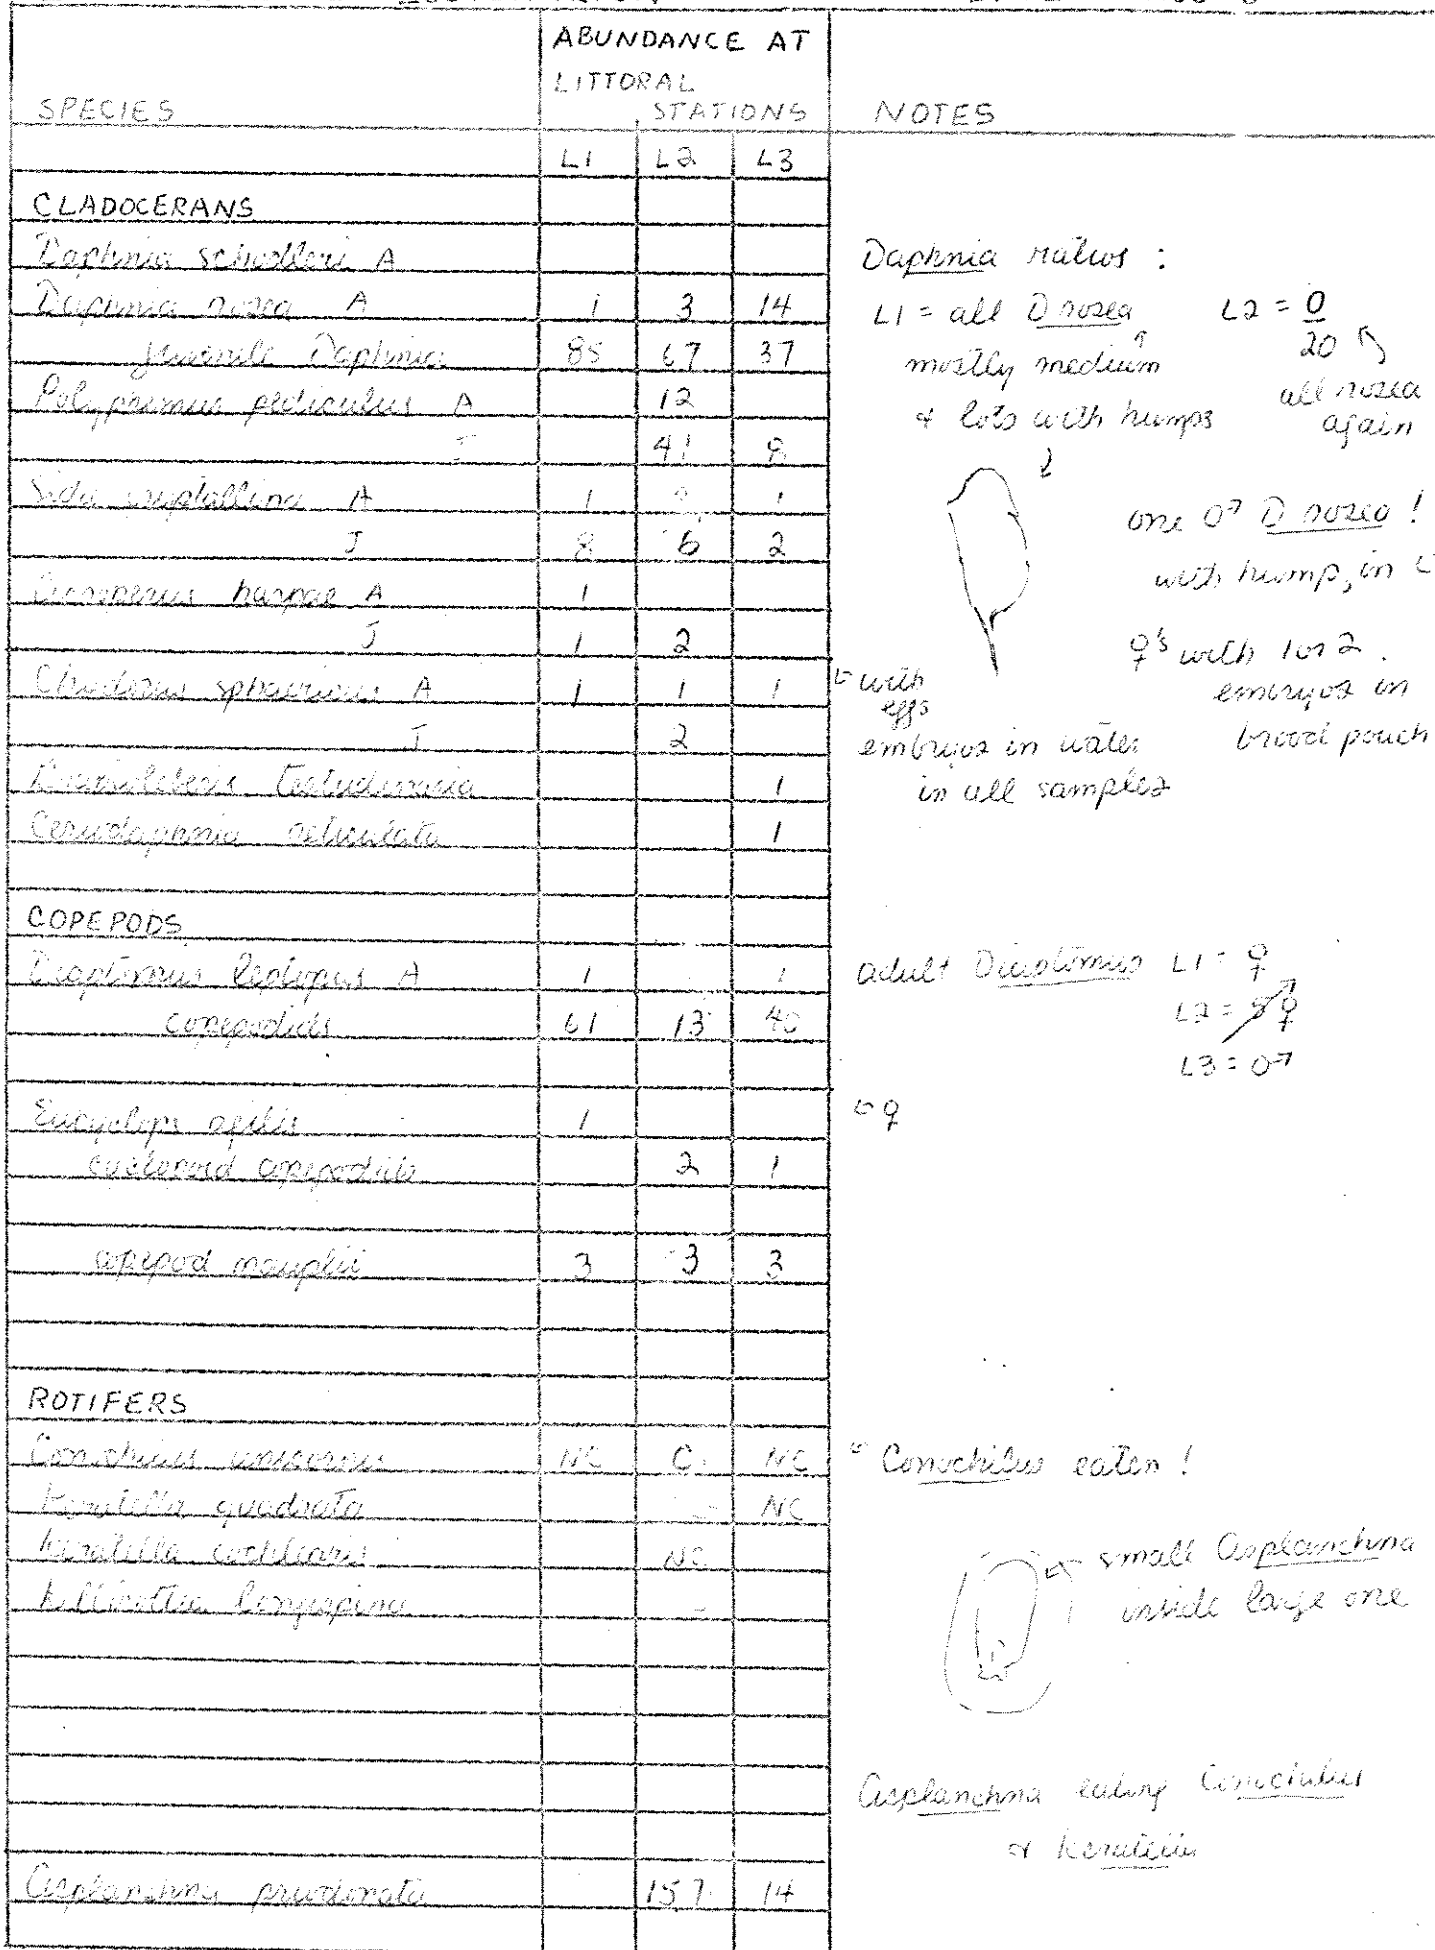 ABUNDANCE AT
LITTORAL
SPECIES STATIONS NOTES
L1 L2 L3
CLADOCERANS
Daphnia schodleri A
Daphnia rosea A 1 3 14
juvenile Daphnia 85 67 37
Polyphemus pediculus A 12
J 41 8
Sida crystallina A 1 1
J 8 6 2
harpae A 1
J 1 2
Chydorus sphaericus A 1 1 1
J 2
testudinaria 1
Ceriodaphnia reticulata 1
COPEPODS
Diaptomus leptopus A 1 1
copepodids 61 13 40
Eucyclops agilis 1
cyclopoid copepodids 2 1
copepod nauplii 3 3 3
ROTIFERS
Conochilus unicornis NC C NC
Keratella quadrata - NC
Keratella cochlearis NC
Kellicottia longispina -
Asplanchna priodonta 157 14
Daphnia ratios :
L1 = all D rosea
mostly medium
& lots with humps
L2 = 0
20
all rosea
again
one ♂ D rosea !
with hump, in
♀'s with 1 or 2
embryos in
brood pouch
with
eggs
embryos in water
in all samples
adult Diaptomus L1 = ♀
L2 = ♀
L3 = ♂
♀
Conochilus eaten !
small Asplanchna
inside large one
Asplanchna eating Conochilus
& Keratella